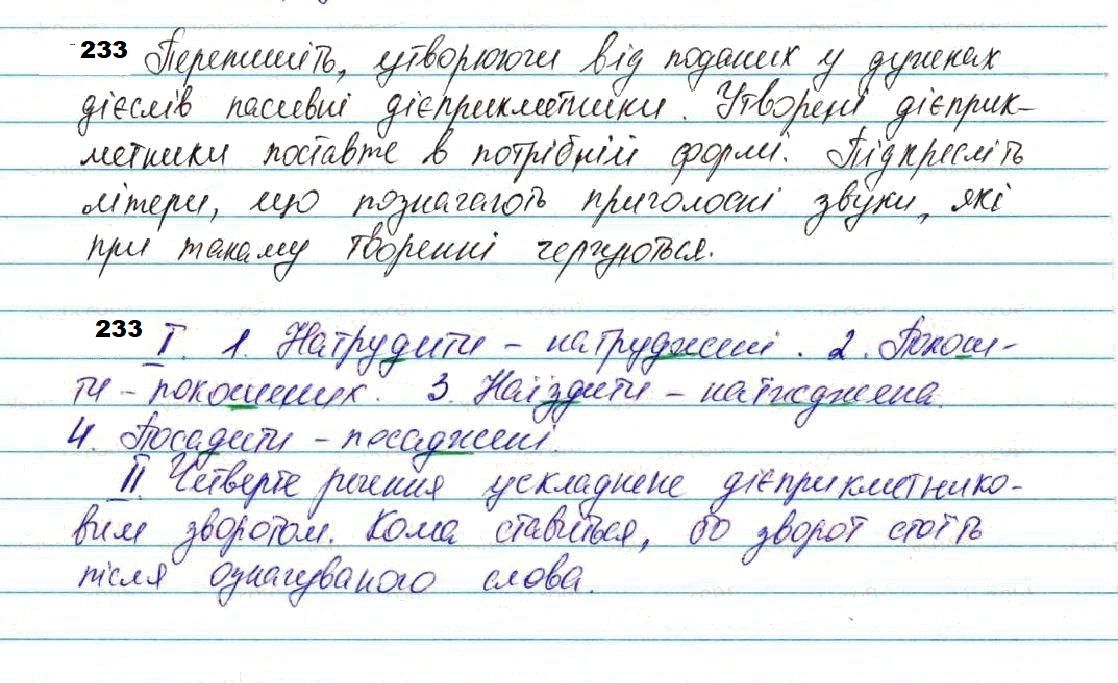 233 Перепишіть, утворюючи від поданих у дужках
дієслів пасивні дієприкметники. Утворені дієприк-
метники поставте в потрібній формі. Підкресліть
літери, що позначають приголосні звуки, які
при такому творенні чергуються.
233 I. 1. Натрудити – натруджені. 2. Покоси-
ти – покошених. 3. Наїздити – наїжджена.
4. Посадити – посаджені.
II. Четверте речення ускладнене дієприкметнико-
вим зворотом. Кома ставиться, бо зворот стоїть
після означуваного слова.